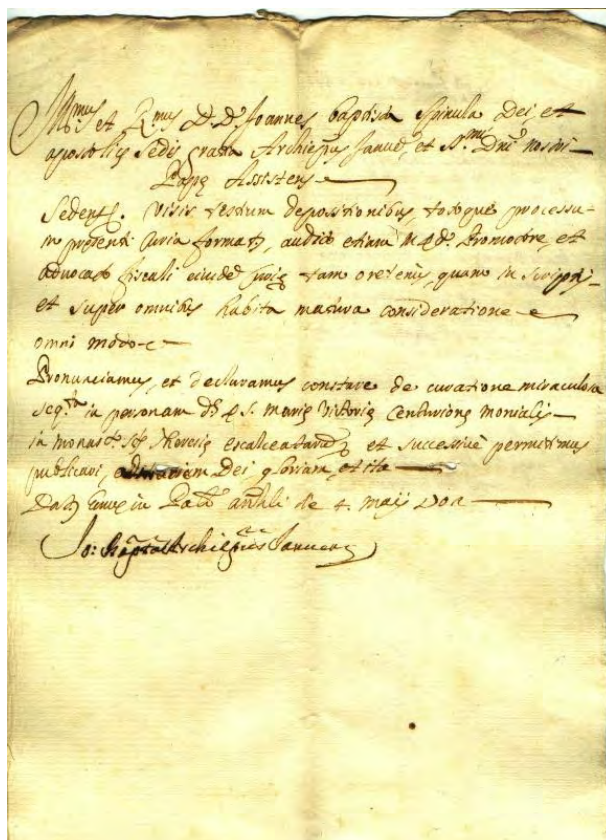 Ill.mus et R.mus D. D. Joannes Baptista Spinula Dei et
apostolicę Sedis gratia Archiep̃us Januę, et S.mi Dni nostri
Papę Assistens
Sedens. Visis testium depositionibus, totoque processu
in presenti Curia format, audito etiam Promotore, et
advocato fiscali eiusdem Curię tam oretenus, quam in scriptis,
et super omnibus habita matura consideratione
omni modo
Pronunciamus, et declaramus constare de curatione miraculosa
seq.ta in personam S. Marię Victorię Centurionę monialis
in monast. S.tę Theresię excalceatarum et successivè permittimus
publicari, ad maiorem Dei gloriam, et ita
Dat Genuę in Pal archĩali die 4. maij
Jo: Bapta Archiep̃us Januen